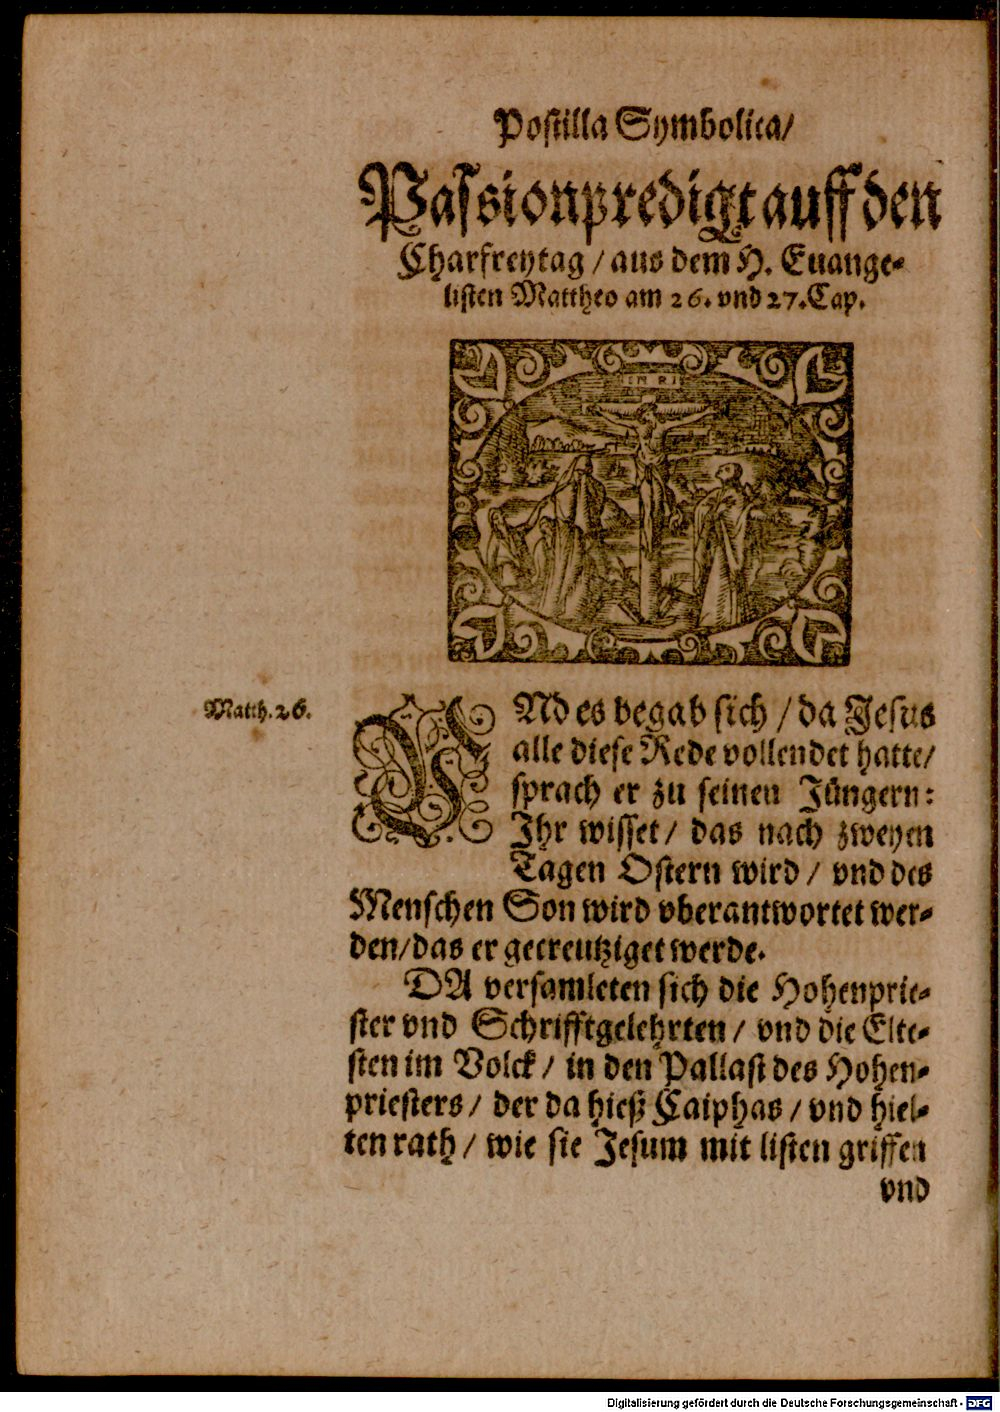 Postilla Symbolica/
Passionpredigt auff den
Charfreytag / aus dem H. Euange-
listen Mattheo am 26. vnd 27. Cap.
INRI
Matth. 26.
VNd es begab sich / da Jesus
alle diese Rede vollendet hatte/
sprach er zu seinen Jüngern:
Ihr wisset / das nach zweyen
Tagen Ostern wird / vnd des
Menschen Son wird vberantwortet wer-
den/das er gecreutziget werde.
DA versamleten sich die Hohenprie-
ster vnd Schrifftgelehrten / vnd die Elte-
sten im Volck / in den Pallast des Hohen-
priesters / der da hieß Caiphas / vnd hiel-
ten rath / wie sie Jesum mit listen griffen
vnd
Digitalisierung gefördert durch die Deutsche Forschungsgemeinschaft - DFG